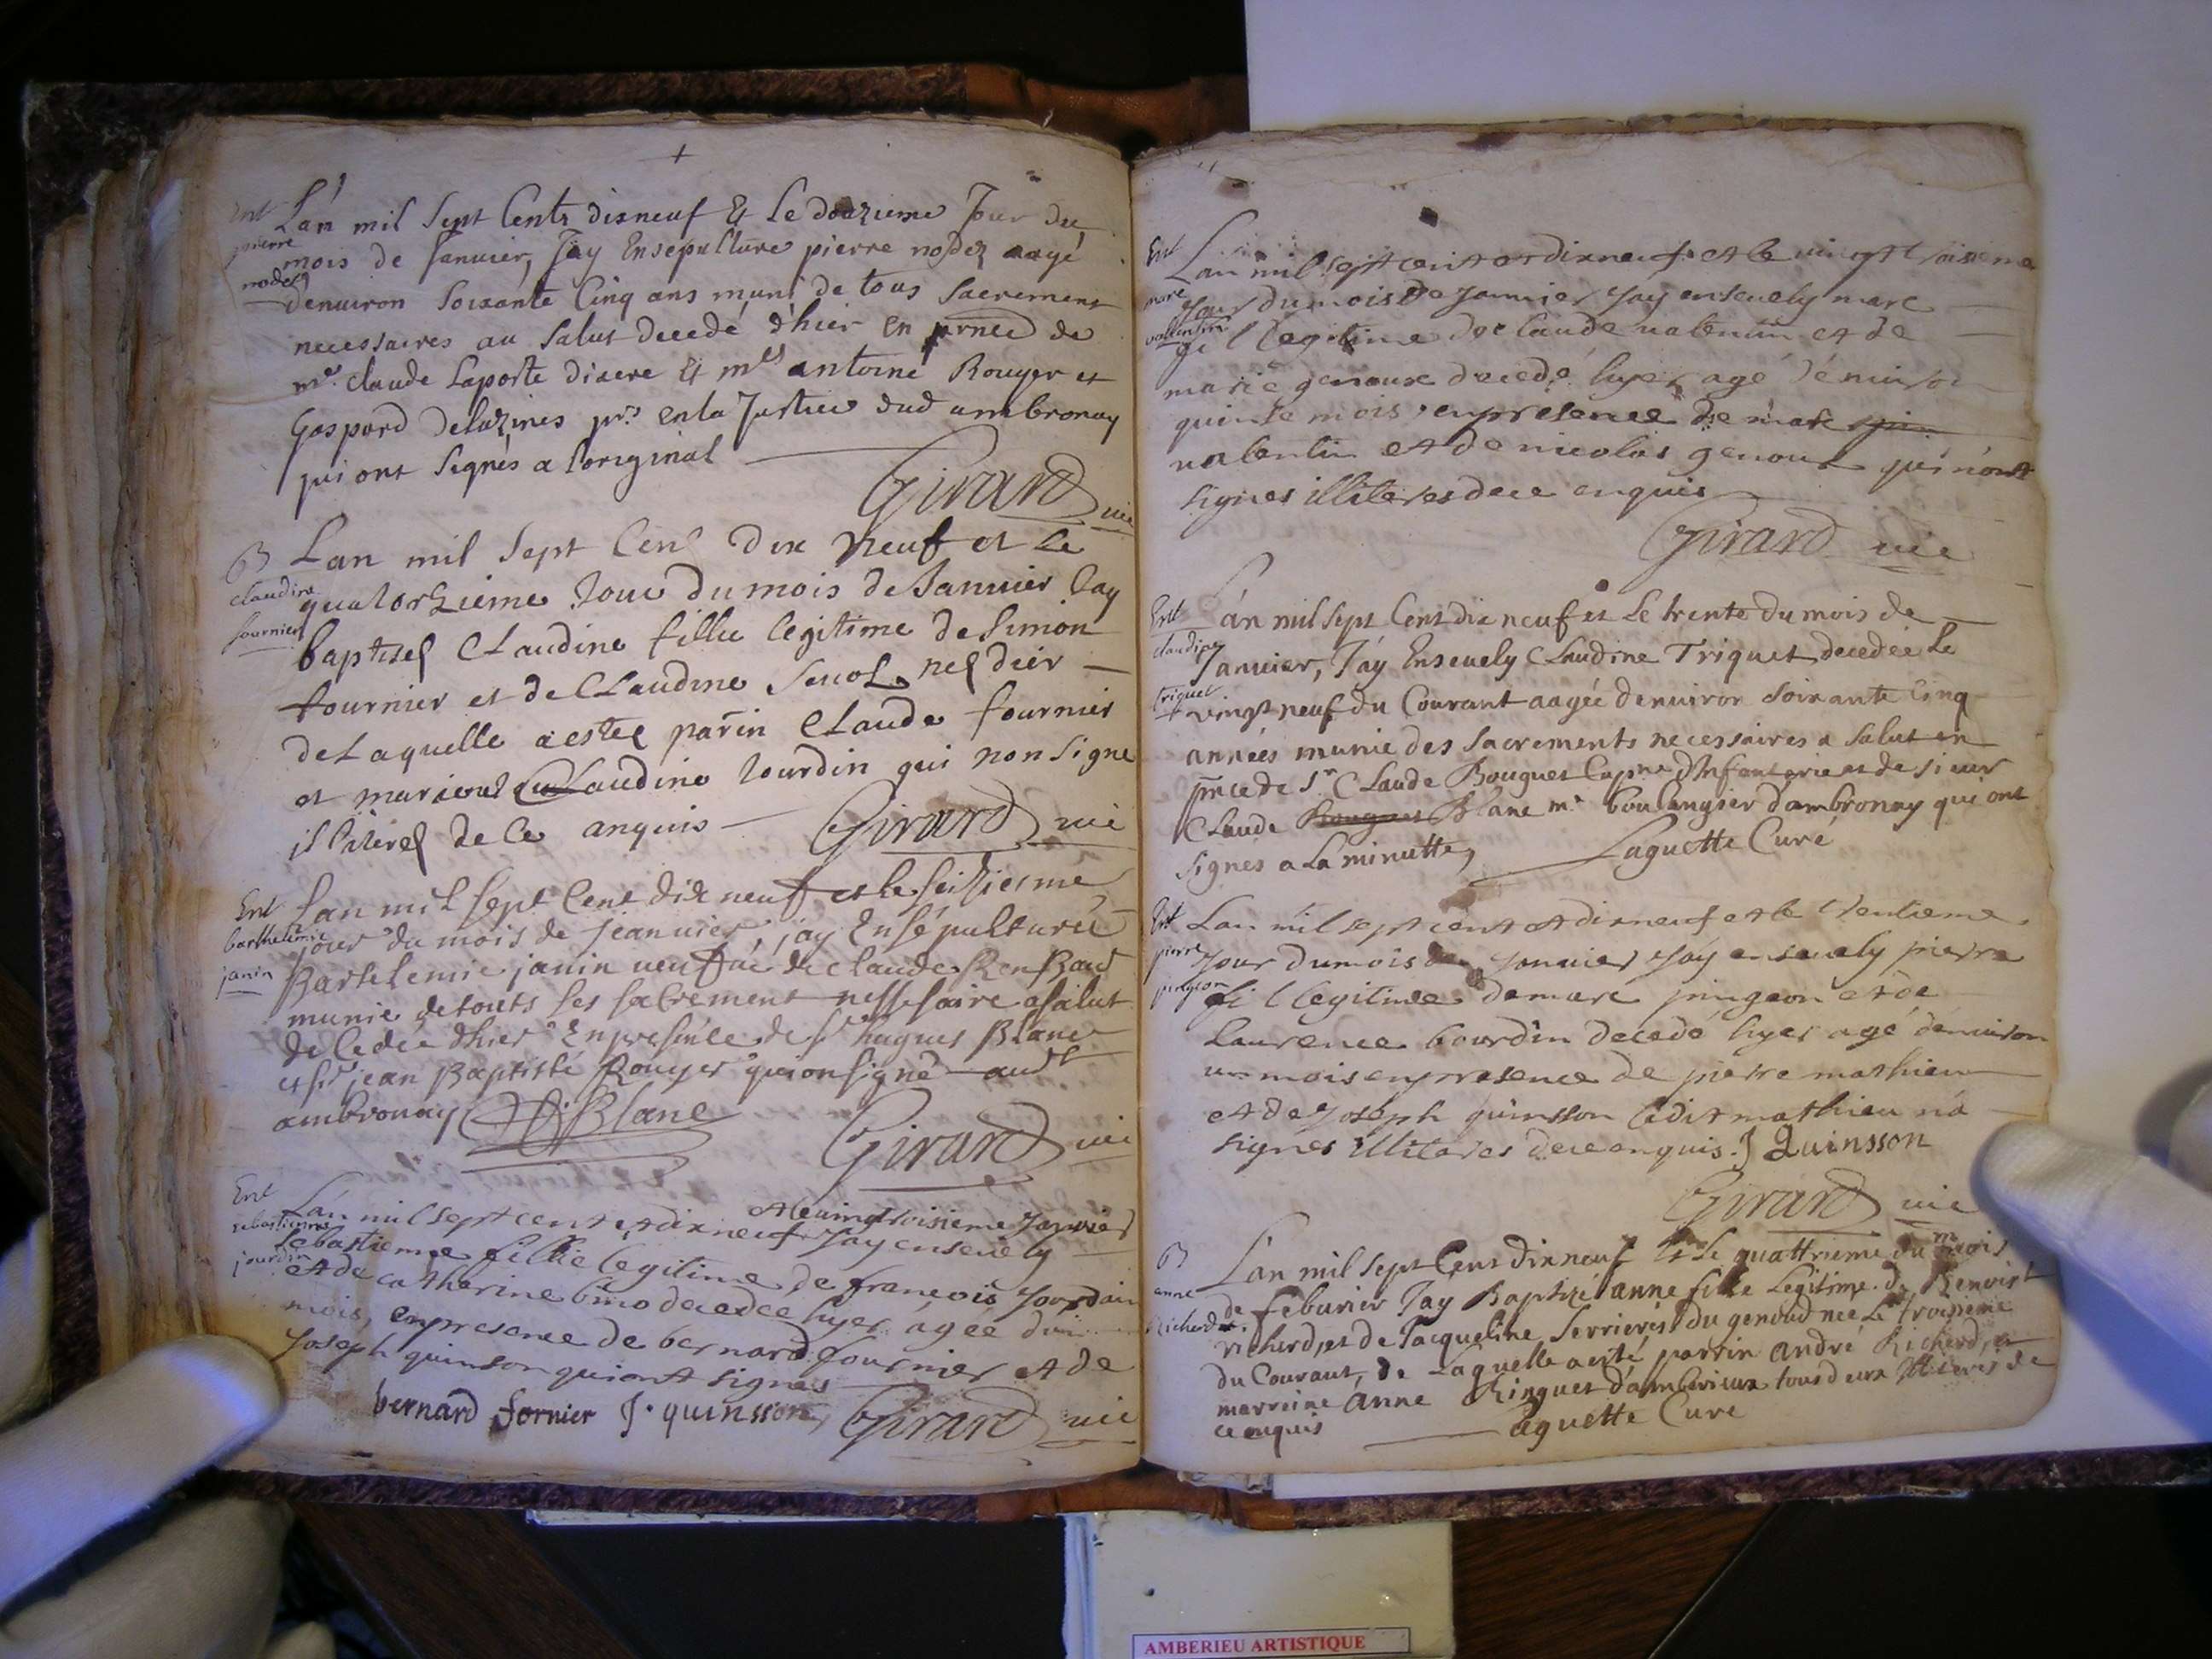 Ent
pierre
nodet
Lan mil Sept Cents dixneuf Et Le douzieme Jour du
mois de Januier, Jay Ensepulture pierre aagé
denuiron Soixante Cinq ans muni de tous Sacrement
necessaires au Salut decedé d'hier en de
mre. claude Laporte diacre Et mes antoine Rouyer et
Gaspard Delazines prs. enla Justice dud ambronay
qui ont Signés a loriginal
Girard vic
B
claudine
fournier
Lan mil Sept Cens dix Neuf et Le
quatorzieme Jour du mois de Januier Jay
baptisez Claudine fillie legitime de Simon
fournier et de Claudine nez dier
de Laquelle a estez parin Claude fournier
et Claudine Jourdin qui non Signe
illiterez de Ce anquis
Girard vic
Ent
barthelemie
janin
Lan mil sept Cent dix neuf et le seiziesme
jour du mois de jeanuier, jay Ensépulturéé
Bartelemie janin ueuffue de claude
munie de touts ses sacrement nessesaire a salut
decedée dhier En presence de sr hugues Blanc
et sr jean Baptisté Rouyer qui on signé audt
ambronay
Blanc
Girard vic
Ent
sebastienne
jourdin
et le uingtroisieme Januier
Lan mil sept cent et dixneuf Jay enseuely
Sebastienne fillie legitime de francois Jourdain
et de catherine decedee hyer agée dun
mois, en presence de bernard fournier et de
Joseph quinson qui ont signes
bernard fornier J. quinsson
Girard vic
Ent
marc
valentin
Lan mil sept cent et dixneuf et le uingt troisieme
Jour du mois de Januier Jay enseuely marc
fil legitime de claude ualentin et de
marie genoux decedé hyer agé dénuiron
quinse mois en presence de marc
ualentin et de nicolas genoux qui nont
signes illiteres de ce enquis
Girard vic
Ent
claudine
triquet
Lan mil sept Cent dix neuf et Le trente du mois de
Januier, Jay Enseuely Claudine Triquet decedée le
vingt neuf du Courant aagée denuiron soixante Cinq
années munie des sacrements necessaires a salut en
pnce de Sr Claude Bouguet Capne dInfanterie et de sieur
Claude Blanc mr boulangier dambronay qui ont
signés a La minutte,
Laguette Curé
Ent
pierre
pingeon
Lan mil sept cent et dixneuf et le trentieme
Jour du mois de Januier Jay enseuely pierre
fil legitime de marc pingeon et de
Laurence bourdin decedé hyer agé denuiron
un mois en presence de pierre mathieu
et de Joseph quinsson ledit mathieu na
signes illiteres de ce enquis. J Quinsson
Girard vic
B
anne
Richerd
L'an mil sept Cent dixneuf Et Le quattrieme du mois
de feburier Jay Baptisé anne fille Legitime de Benoist
richerd, et de Jacqueline Serrieres du genoud née Le troisieme
du Courant, de Laquelle a esté parrin andré Richerd, et
marreine anne Ringuet d'amberieux tous deux illiteres de
ce enquis
Laguette Curé
AMBERIEU ARTISTIQUE